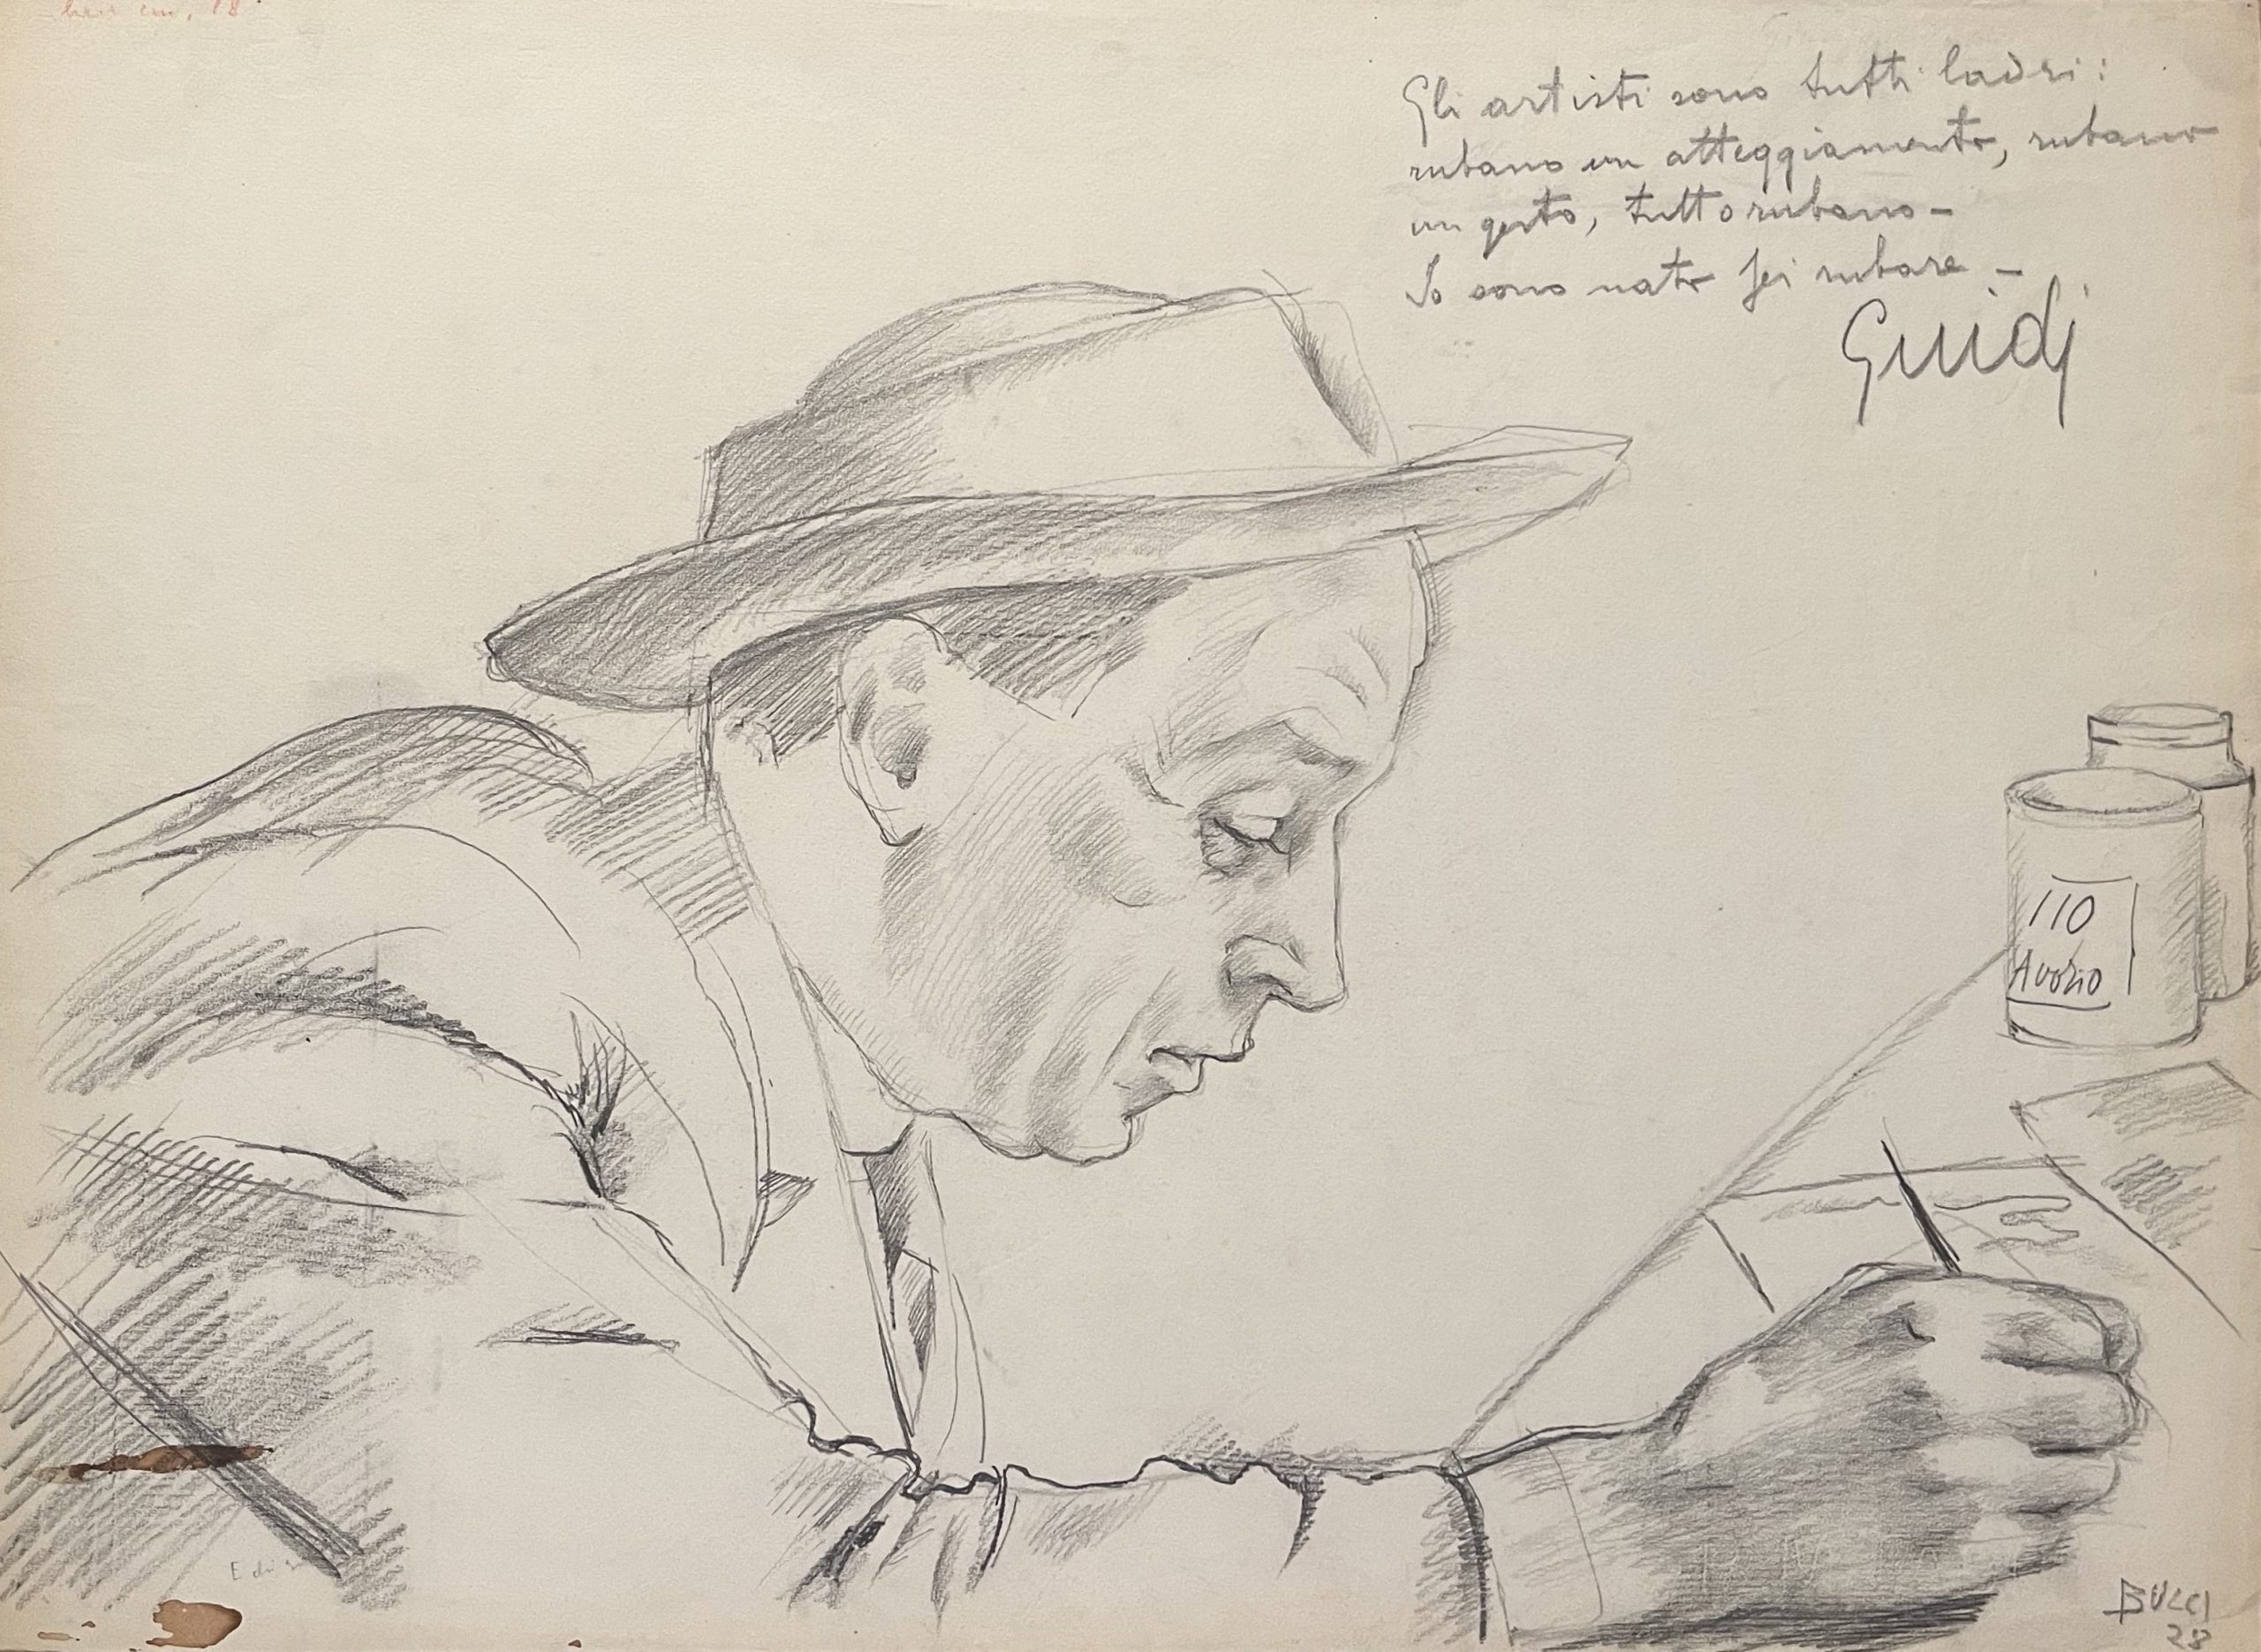 Gli artisti sono tutti ladri:
rubano un atteggiamento, rubano
un gesto, tutto rubano -
Io sono nato per rubare -
Guidi
110
Avorio
BUCCI